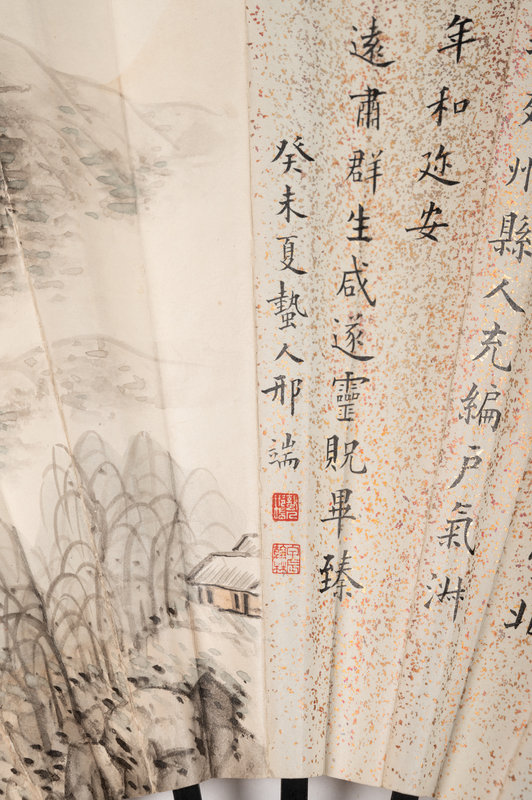 州縣人充編戶氣淋
年和迩安
遠肅群生咸遂靈貺畢臻
癸未夏蟄人邢端